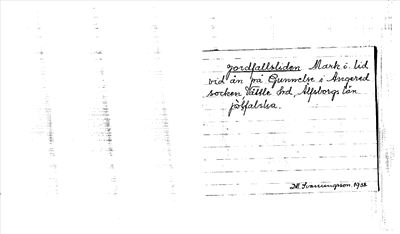 Jordfallsliden Mark i lid
vid ån på Gunnelse i Angered
socken Vättle hd, Älfsborgs län
jolfalslia.
1938